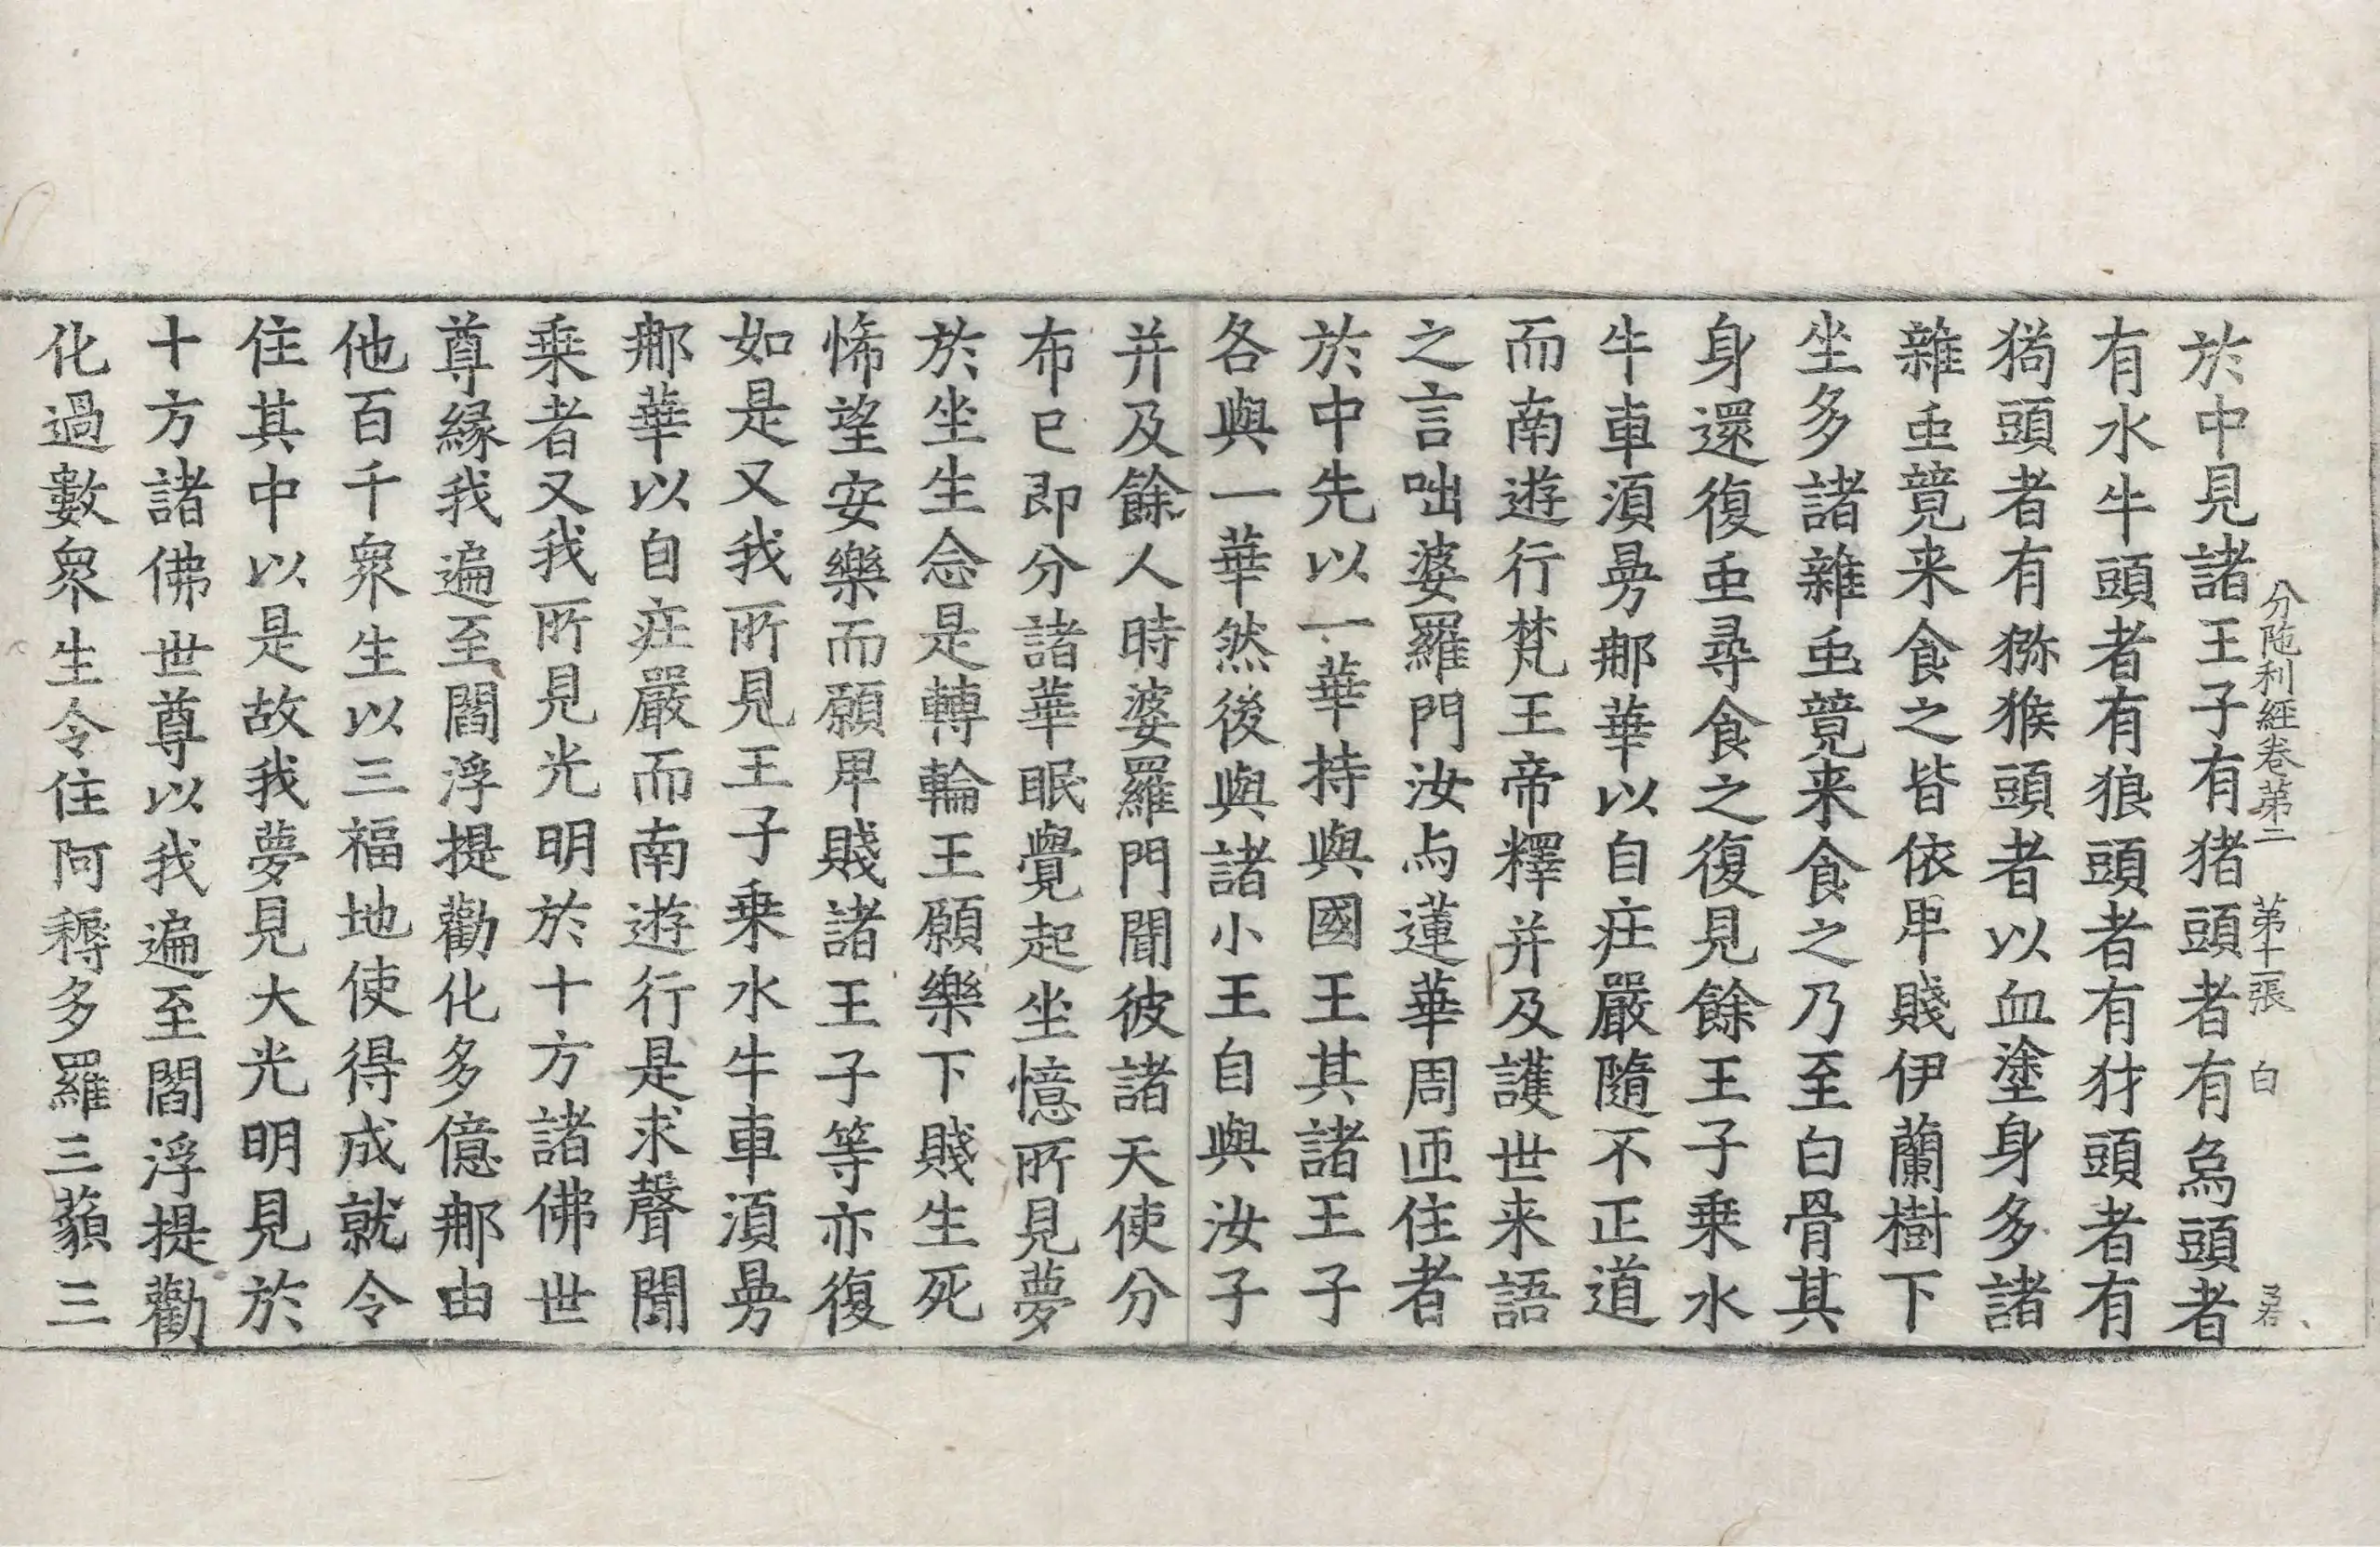 分陁利經卷第二 第十張 白
於中見諸王子有猪頭者有烏頭者
有水牛頭者有狼頭者有犲頭者有
猗頭者有猕猴頭者以血塗身多諸
雜䖝竟来食之皆依卑賤伊蘭樹下
坐多諸雜䖝竟来食之乃至白骨其
身還復䖝尋食之復見餘王子乗水
牛車湏曼那華以自庄嚴隨不正道
而南遊行梵王帝釋并及護世来語
之言咄婆羅門汝与蓮華周匝住者
於中先以一華持與國王其諸王子
各與一華然後與諸小王自與汝子
并及餘人時婆羅門聞彼諸天使分
布已即分諸華眠覺起坐憶所見夢
於坐生念是轉輪王願樂下賤生死
悕望安樂而願卑賤諸王子等亦復
如是又我所見王子乗水牛車湏曼
那華以自庄嚴而南遊行是求聲聞
乗者又我所見光明於十方諸佛世
尊緣我遍至閻浮提勸化多億那由
他百千衆生以三福地使得成就令
住其中以是故我夢見大光明見於
十方諸佛世尊以我遍至閻浮提勸
化過數衆生令住阿耨多羅三藐三